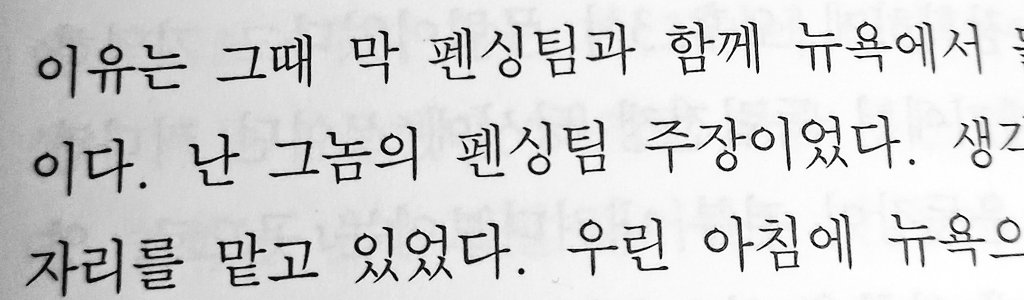 이유는 그때 막 펜싱팀과 함께 뉴욕에서
이다. 난 그놈의 펜싱팀 주장이었다.
자리를 맡고 있었다. 우린 아침에